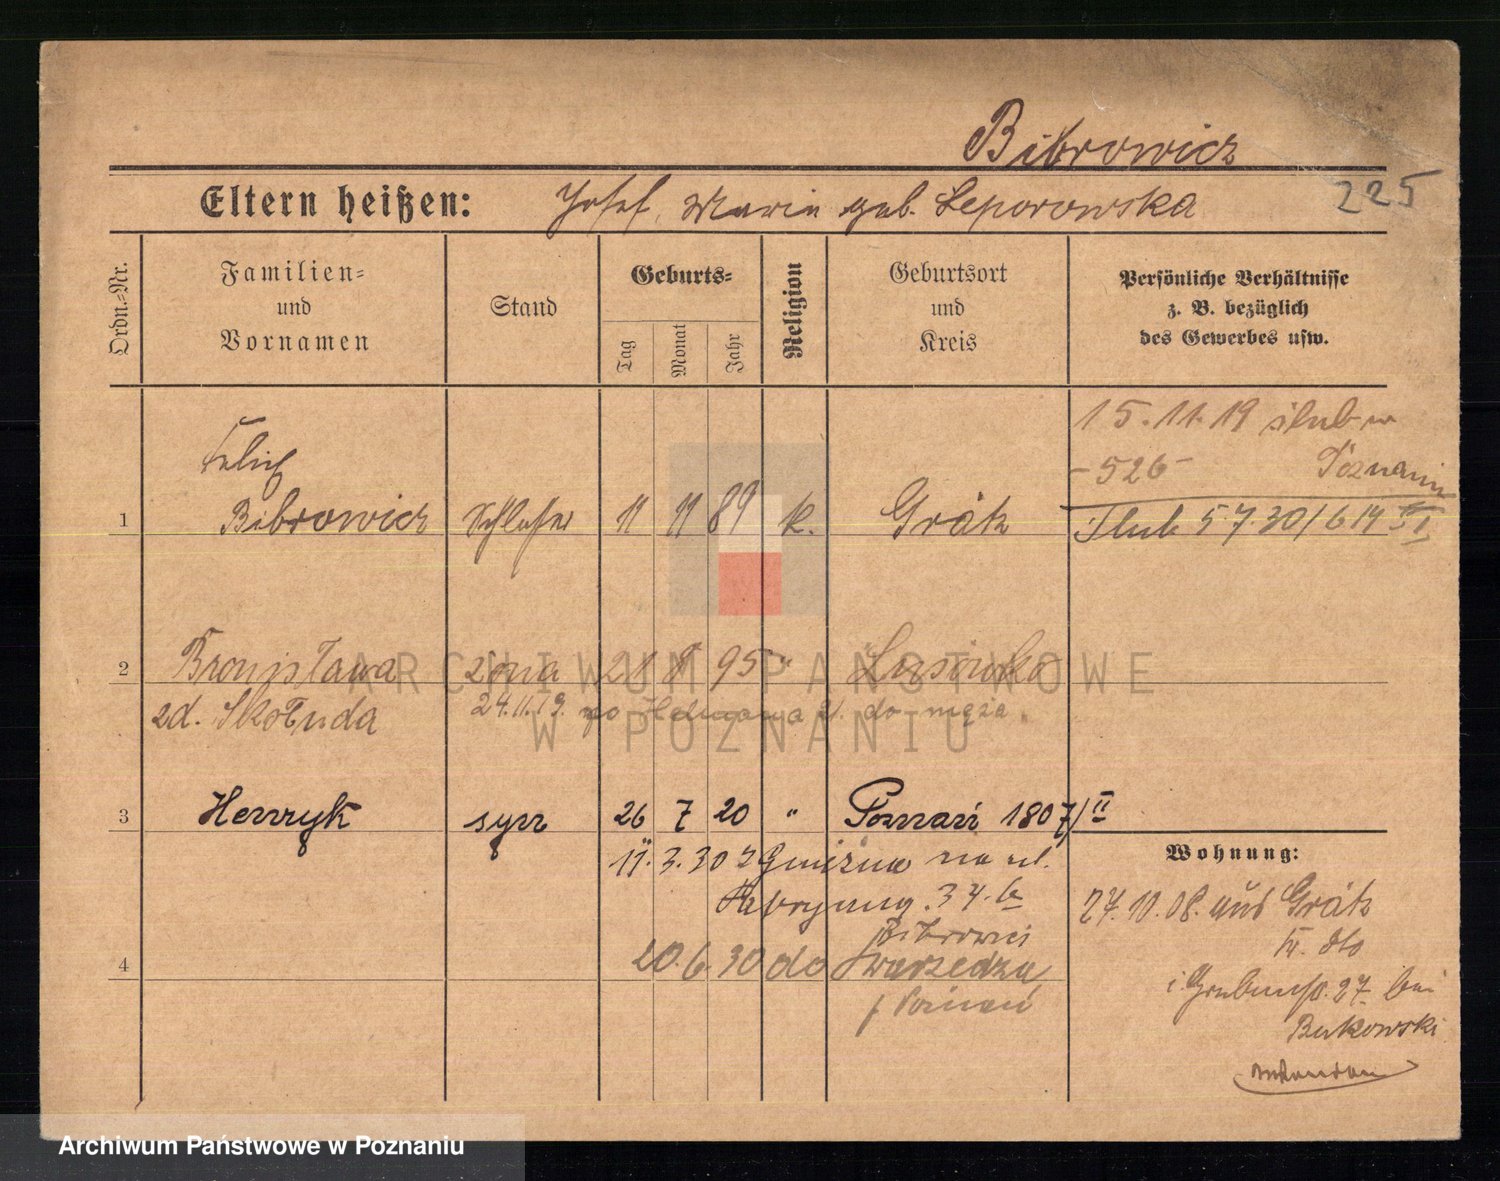 Bibrowicz
225
Eltern heißen: Josef, Maria geb. Leporowska
Ordn.-Nr.
Familien-
und
Vornamen
Stand
Geburts-
Tag
Monat
Jahr
Religion
Geburtsort
und
Kreis
Persönliche Verhältnisse
z. B. bezüglich
des Gewerbes usw.
15.11.19 ślub w
-526- Poznaniu
Felix
1 Bibrowicz Schlosser 11 11 89 k. Grätz
5.7.30/614 VI
2 Bronisława żona 21 8 95 " Lusówko
zd. Skołuda
24.11.19. do męża
3 Henryk syn 26 7 20 " Poznań 1807/II
Wohnung:
11.3.30 z Gniezna na ul.
34. b
Bibrowicz
4 20.6.30 do Swarzędza
p Poznań
27.10.08. aus Grätz
27 bei
Bukowski
ARCHIWUM PAŃSTWOWE
W POZNANIU
Archiwum Państwowe w Poznaniu